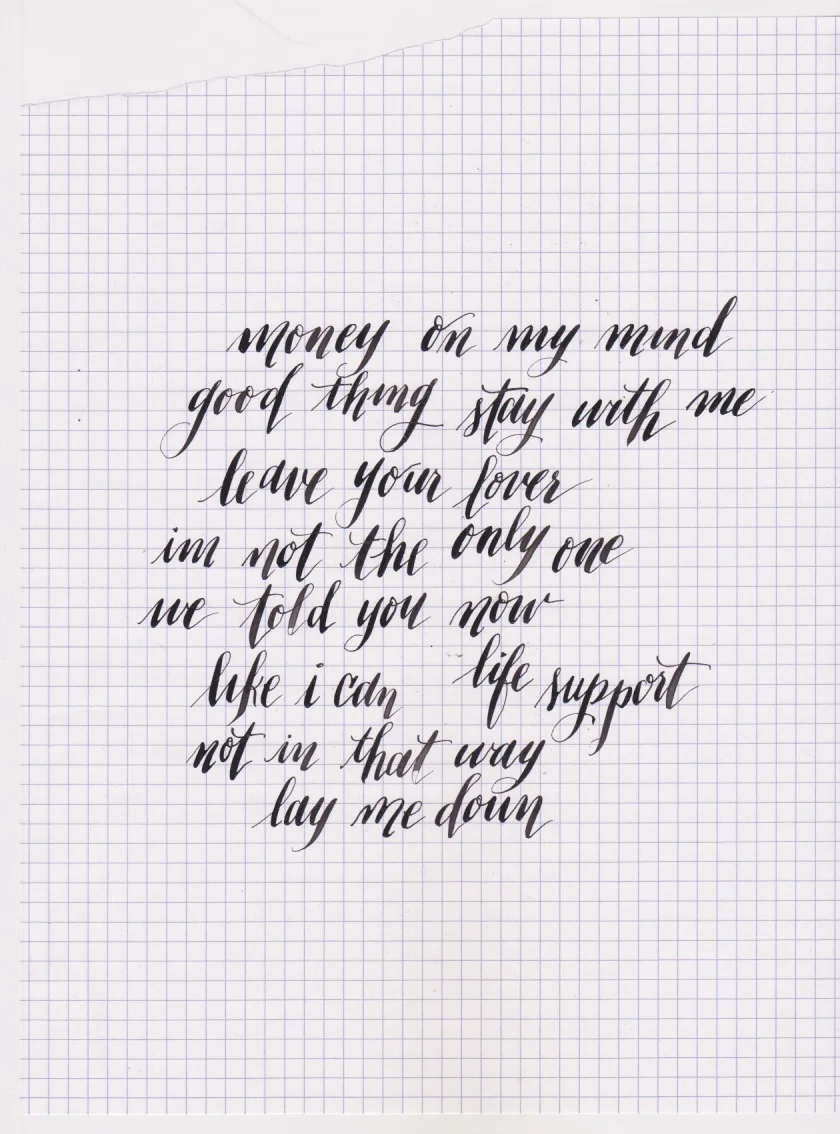 money on my mind
good thing stay with me
leave your lover
im not the only one
we told you now
like i can life support
not in that way
lay me down